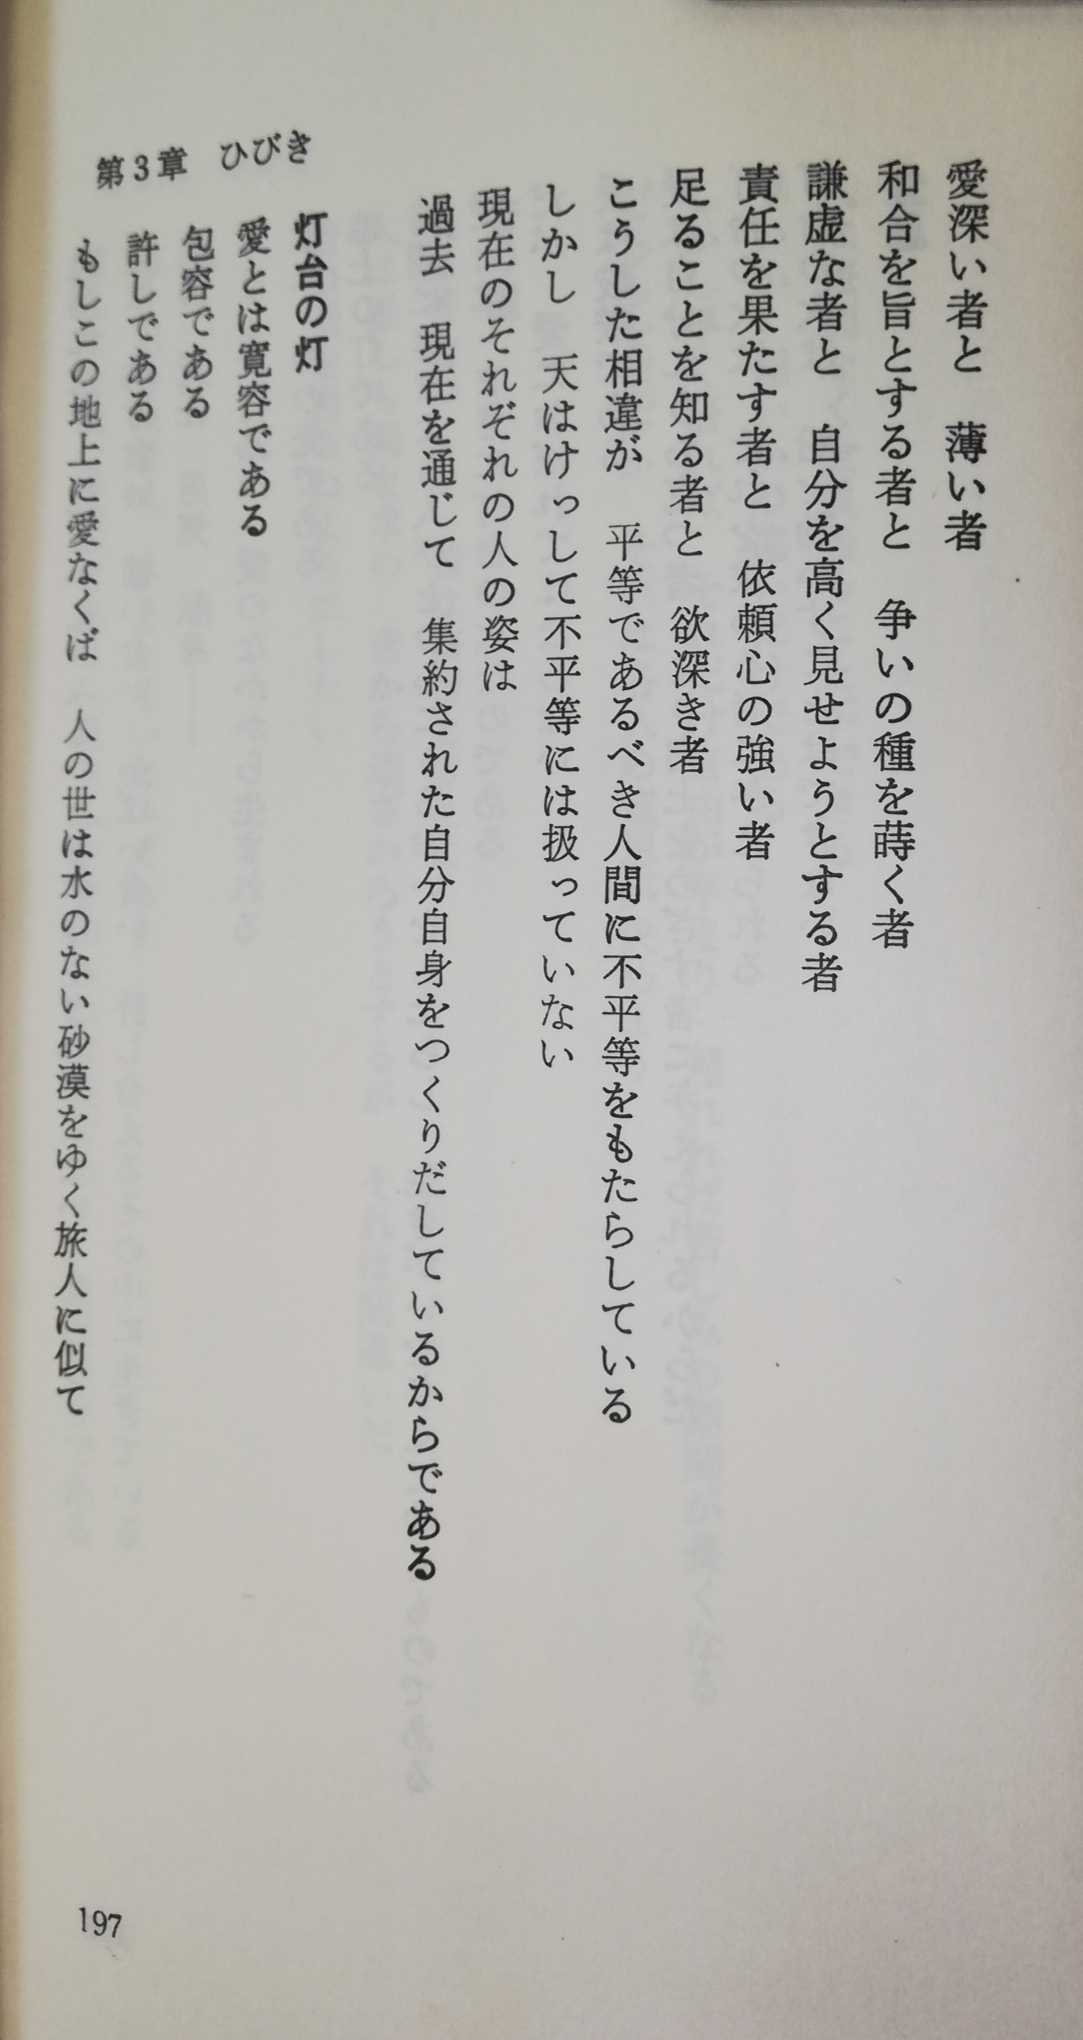 第3章　ひびき
愛深い者と　薄い者
和合を旨とする者と　争いの種を蒔く者
謙虚な者と　自分を高く見せようとする者
責任を果たす者と　依頼心の強い者
足ることを知る者と　欲深き者
こうした相違が　平等であるべき人間に不平等をもたらしている
しかし　天はけっして不平等には扱っていない
現在のそれぞれの人の姿は
過去　現在を通じて　集約された自分自身をつくりだしているからである
灯台の灯
愛とは寛容である
包容である
許しである
もしこの地上に愛なくば　人の世は水のない砂漠をゆく旅人に似て
197